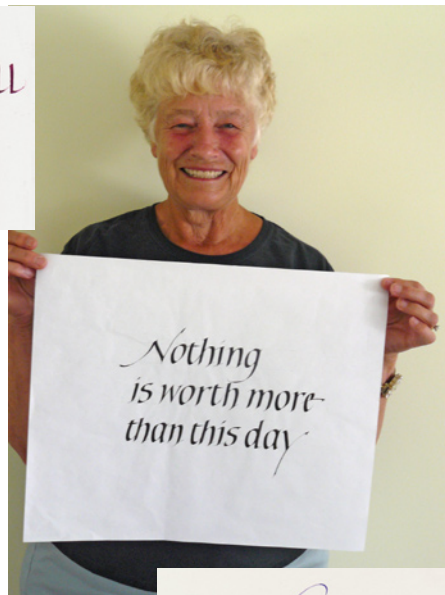 Nothing
is worth more
than this day